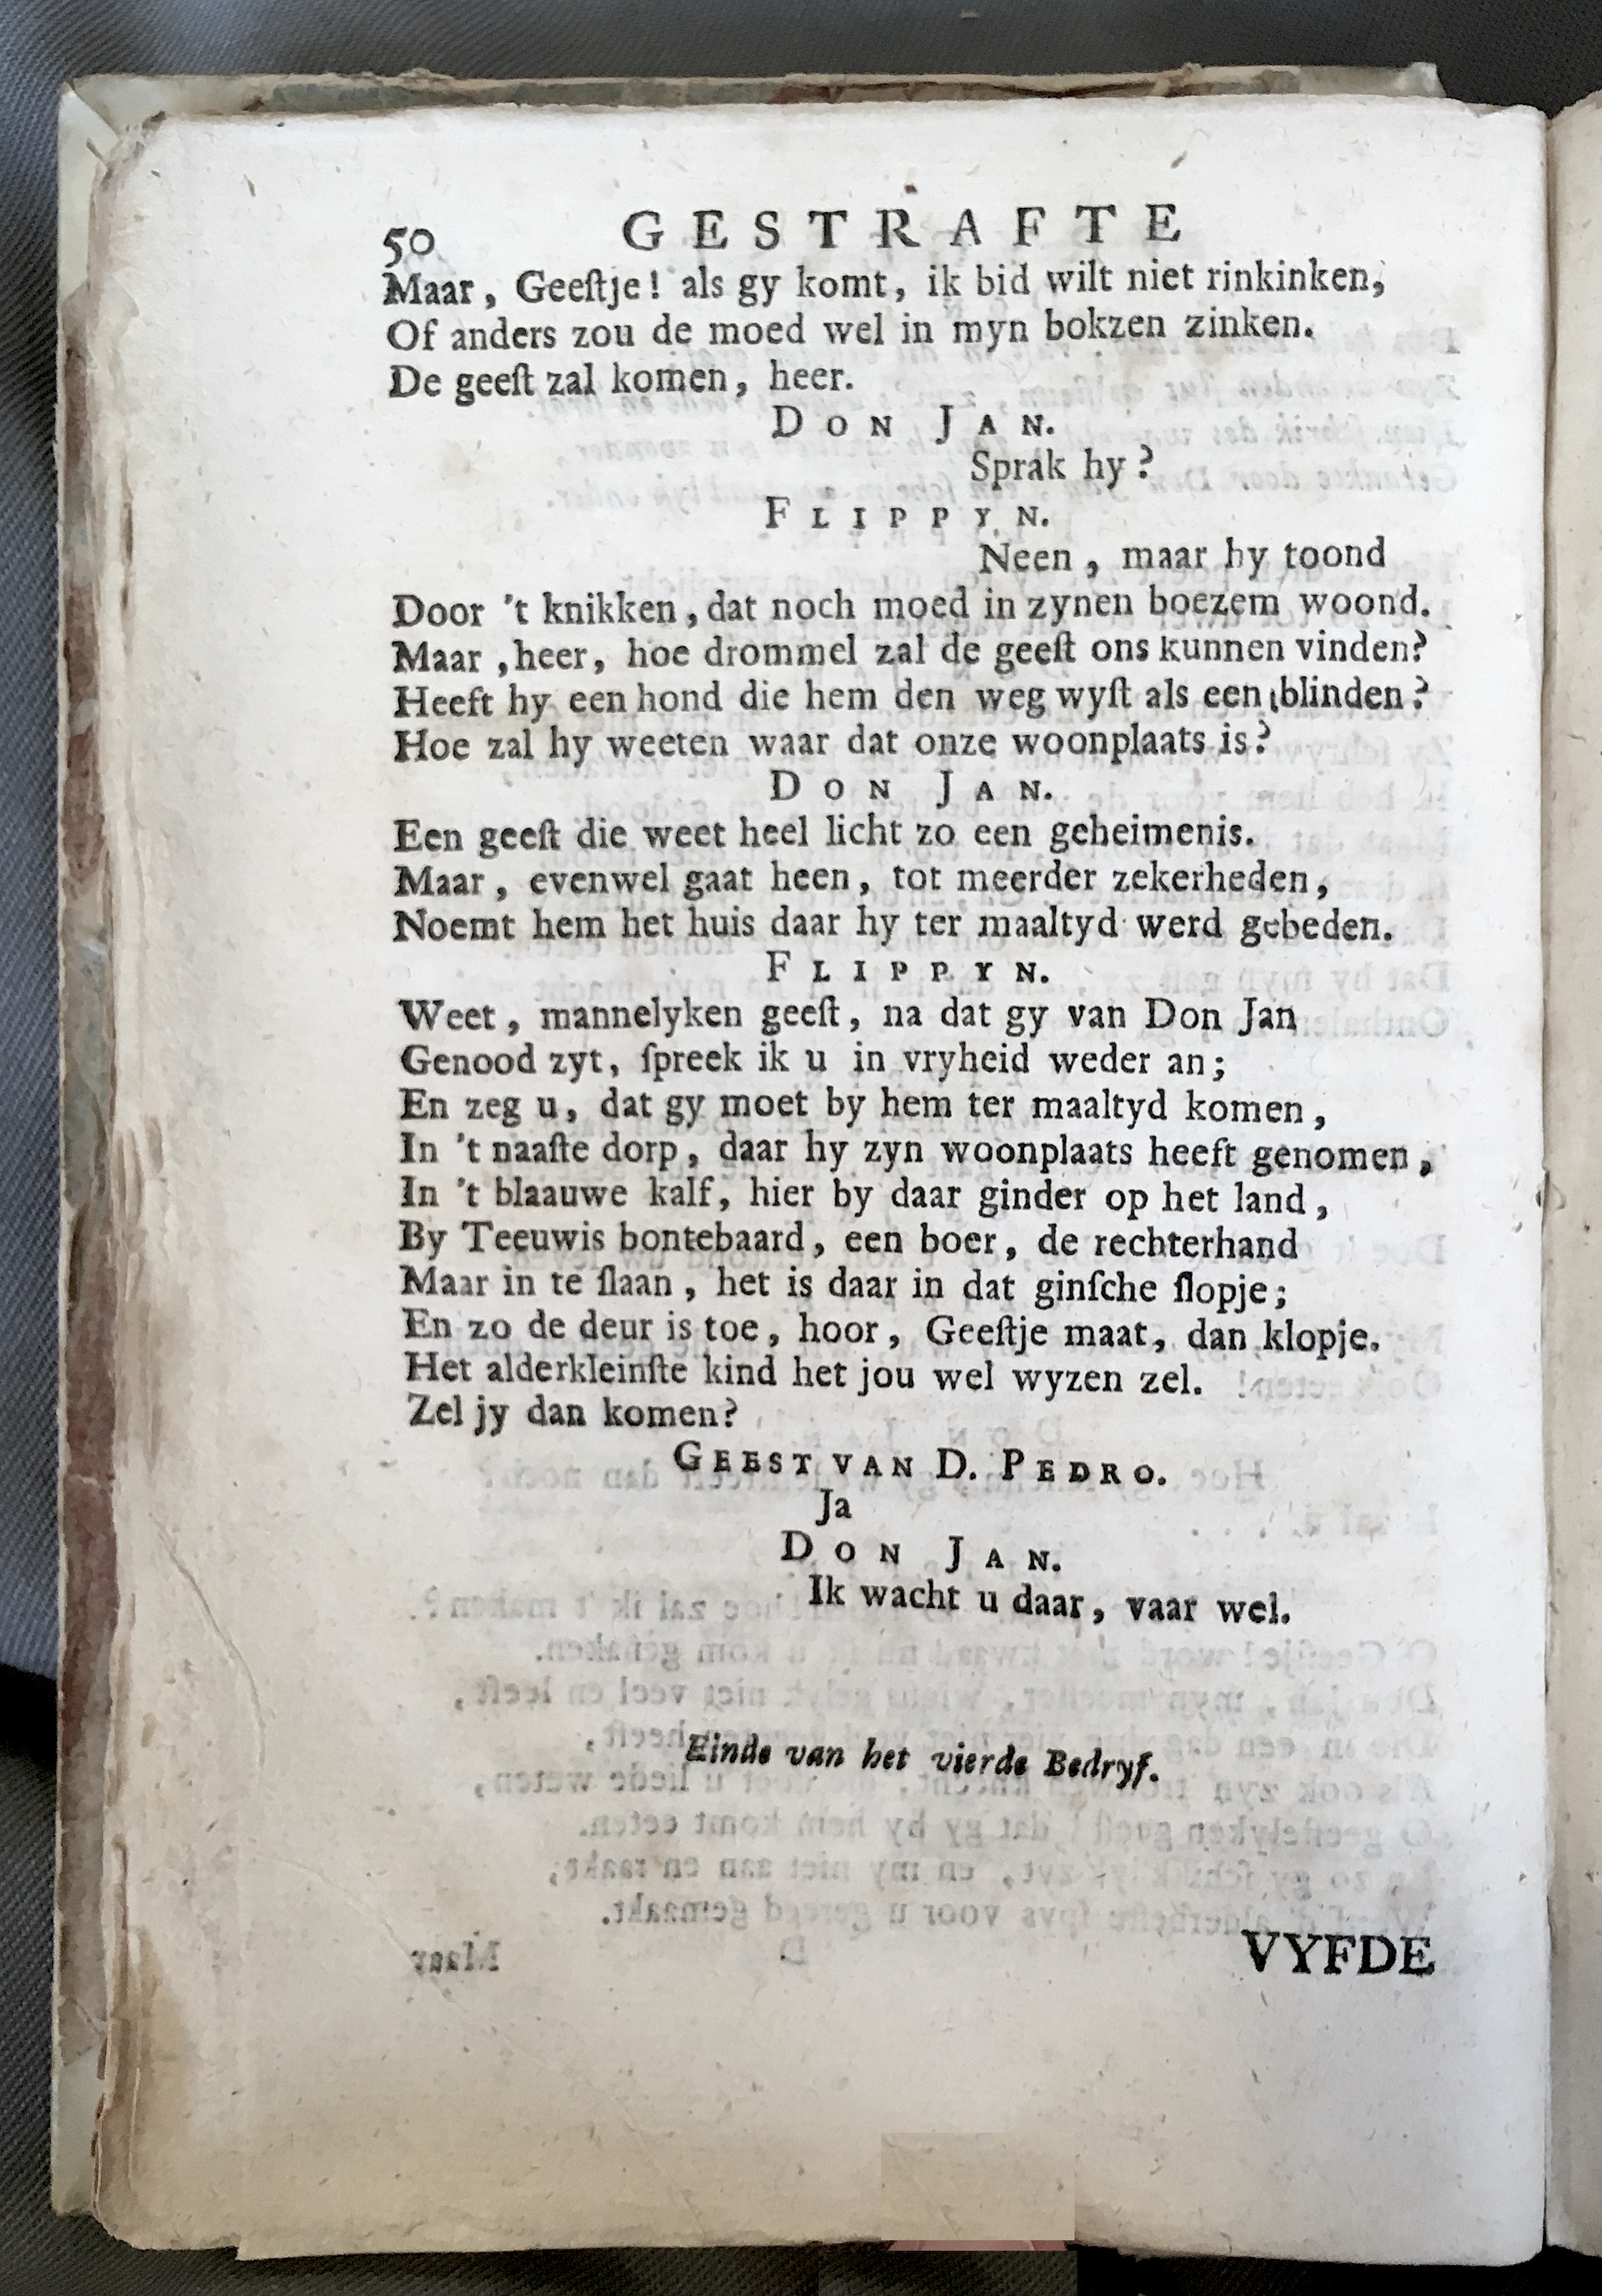 50 GESTRAFTE
Maar, Geeſtje! als gy komt, ik bid wilt niet rinkinken,
Of anders zou de moed wel in myn bokzen zinken.
De geeſt zal komen, heer.
DON JAN.
Sprak hy?
FLIPPYN.
Neen, maar hy toond
Door 't knikken, dat noch moed in zynen boezem woond.
Maar, heer, hoe drommel zal de geeſt ons kunnen vinden?
Heeft hy een hond die hem den weg wyſt als een blinden?
Hoe zal hy weeten waar dat onze woonplaats is?
DON JAN.
Een geeſt die weet heel licht zo een geheimenis.
Maar, evenwel gaat heen, tot meerder zekerheden,
Noemt hem het huis daar hy ter maaltyd werd gebeden.
FLIPPYN.
Weet, mannelyken geeſt, na dat gy van Don Jan
Genood zyt, ſpreek ik u in vryheid weder an;
En zeg u, dat gy moet by hem ter maaltyd komen,
In 't naaſte dorp, daar hy zyn woonplaats heeft genomen,
In 't blaauwe kalf, hier by daar ginder op het land,
By Teeuwis bontebaard, een boer, de rechterhand
Maar in te ſlaan, het is daar in dat ginſche ſlopje;
En zo de deur is toe, hoor, Geeſtje maat, dan klopje.
Het alderkleinſte kind het jou wel wyzen zel.
Zel jy dan komen?
GEEST VAN D. PEDRO.
Ja
DON JAN.
Ik wacht u daar, vaar wel.
Einde van het vierde Bedryf.
VYFDE